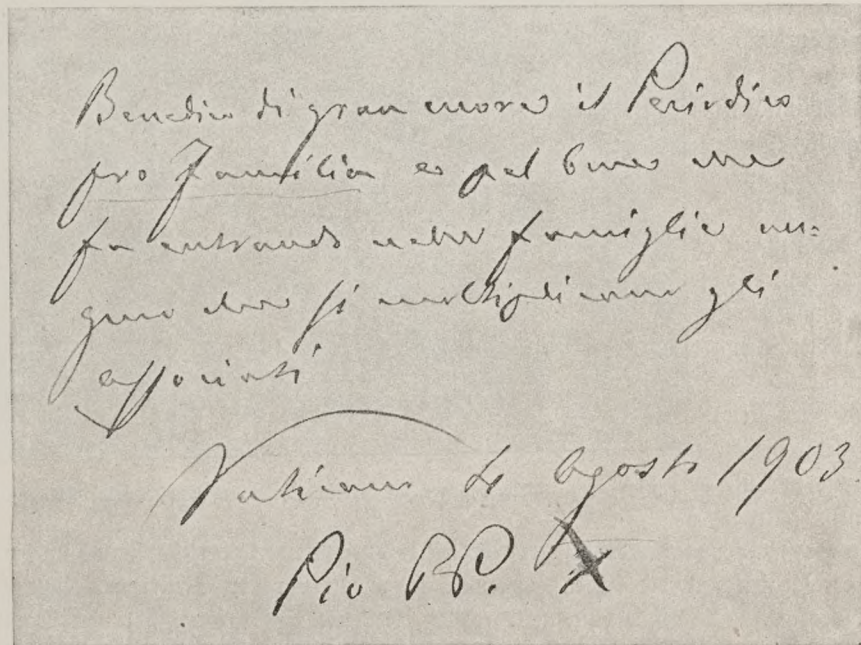 Benedico di gran cuore il Periodico
pro Familia e pel bene che
fa entrando nelle famiglie au=
guro che si moltiplicano gli
associati
Vaticano 4 Agosto 1903
Pio PP. X